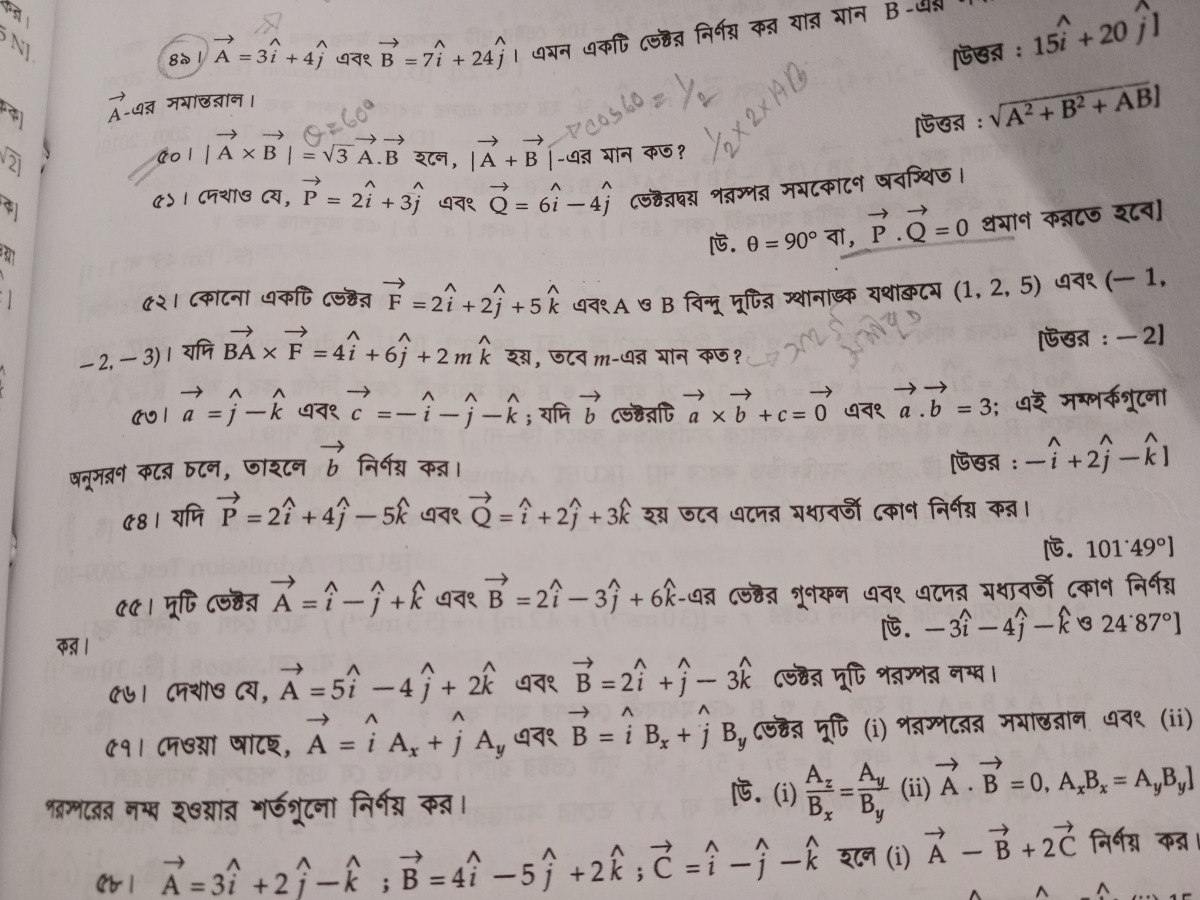 ৪৯। A⃗ = 3î + 4ĵ এবং B⃗ = 7î + 24ĵ। এমন একটি ভেক্টর নির্ণয় কর যার মান B-এর
A⃗-এর সমান্তরাল। [উত্তর : 15î + 20 ĵ]
θ = 60° cos60 = 1/2 1/2 × 2 × AB
৫০। | A⃗ × B⃗ | = √3 A⃗.B⃗ হলে, | A⃗ + B⃗ |-এর মান কত? [উত্তর : √(A² + B² + AB)]
৫১। দেখাও যে, P⃗ = 2î + 3ĵ এবং Q⃗ = 6î − 4ĵ ভেক্টরদ্বয় পরস্পর সমকোণে অবস্থিত।
[উ. θ = 90° বা, P⃗ . Q⃗ = 0 প্রমাণ করতে হবে]
৫২। কোনো একটি ভেক্টর F⃗ = 2î + 2ĵ + 5 k̂ এবং A ও B বিন্দু দুটির স্থানাঙ্ক যথাক্রমে (1, 2, 5) এবং (− 1,
− 2, − 3)। যদি BA⃗ × F⃗ = 4î + 6ĵ + 2 m k̂ হয়, তবে m-এর মান কত? [উত্তর : − 2]
৫৩। a⃗ = ĵ − k̂ এবং c⃗ = − î − ĵ − k̂ ; যদি b⃗ ভেক্টরটি a⃗ × b⃗ + c = 0⃗ এবং a⃗ . b⃗ = 3; এই সম্পর্কগুলো
অনুসরণ করে চলে, তাহলে b⃗ নির্ণয় কর। [উত্তর : − î + 2ĵ − k̂ ]
৫৪। যদি P⃗ = 2î + 4ĵ − 5k̂ এবং Q⃗ = î + 2ĵ + 3k̂ হয় তবে এদের মধ্যবর্তী কোণ নির্ণয় কর।
[উ. 101·49°]
৫৫। দুটি ভেক্টর A⃗ = î − ĵ + k̂ এবং B⃗ = 2î − 3ĵ + 6k̂-এর ভেক্টর গুণফল এবং এদের মধ্যবর্তী কোণ নির্ণয়
কর। [উ. − 3î − 4ĵ − k̂ ও 24·87°]
৫৬। দেখাও যে, A⃗ = 5î − 4 ĵ + 2k̂ এবং B⃗ = 2î + ĵ − 3k̂ ভেক্টর দুটি পরস্পর লম্ব।
৫৭। দেওয়া আছে, A⃗ = î Aₓ + ĵ Aᵧ এবং B⃗ = î Bₓ + ĵ Bᵧ ভেক্টর দুটি (i) পরস্পরের সমান্তরাল এবং (ii)
পরস্পরের লম্ব হওয়ার শর্তগুলো নির্ণয় কর। [উ. (i) A_z/Bₓ = Aᵧ/Bᵧ (ii) A⃗ . B⃗ = 0, AₓBₓ = AᵧBᵧ]
৫৮। A⃗ = 3î + 2 ĵ − k̂ ; B⃗ = 4î − 5 ĵ + 2 k̂ ; C⃗ = î − ĵ − k̂ হলে (i) A⃗ − B⃗ + 2C⃗ নির্ণয় কর।